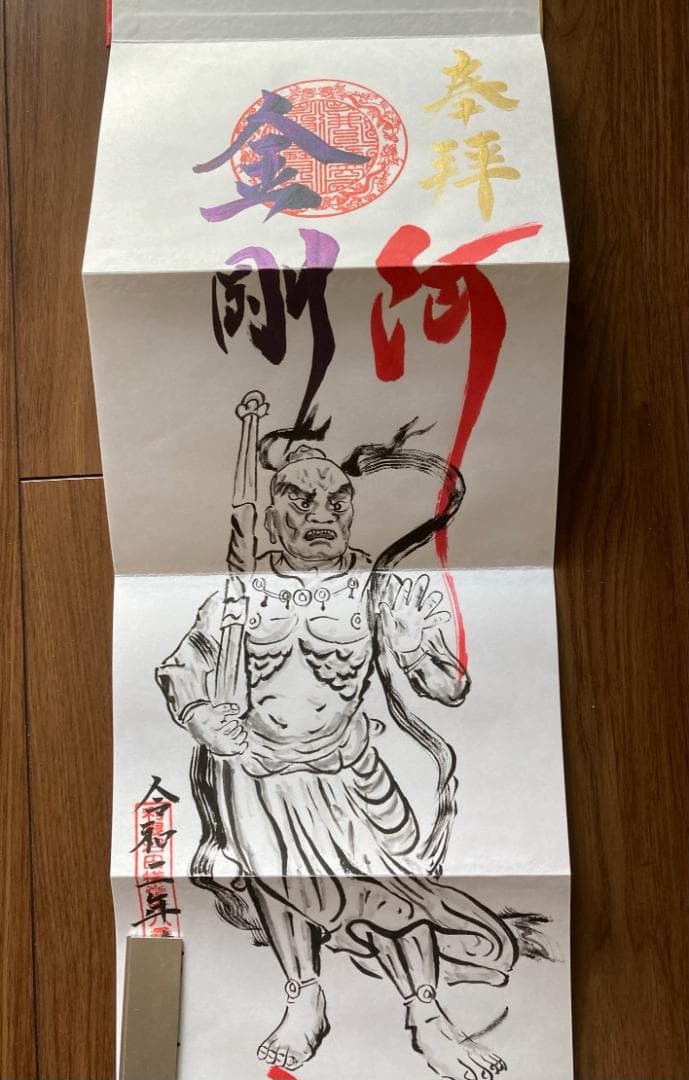 奉拝
阿
金剛
令和二年